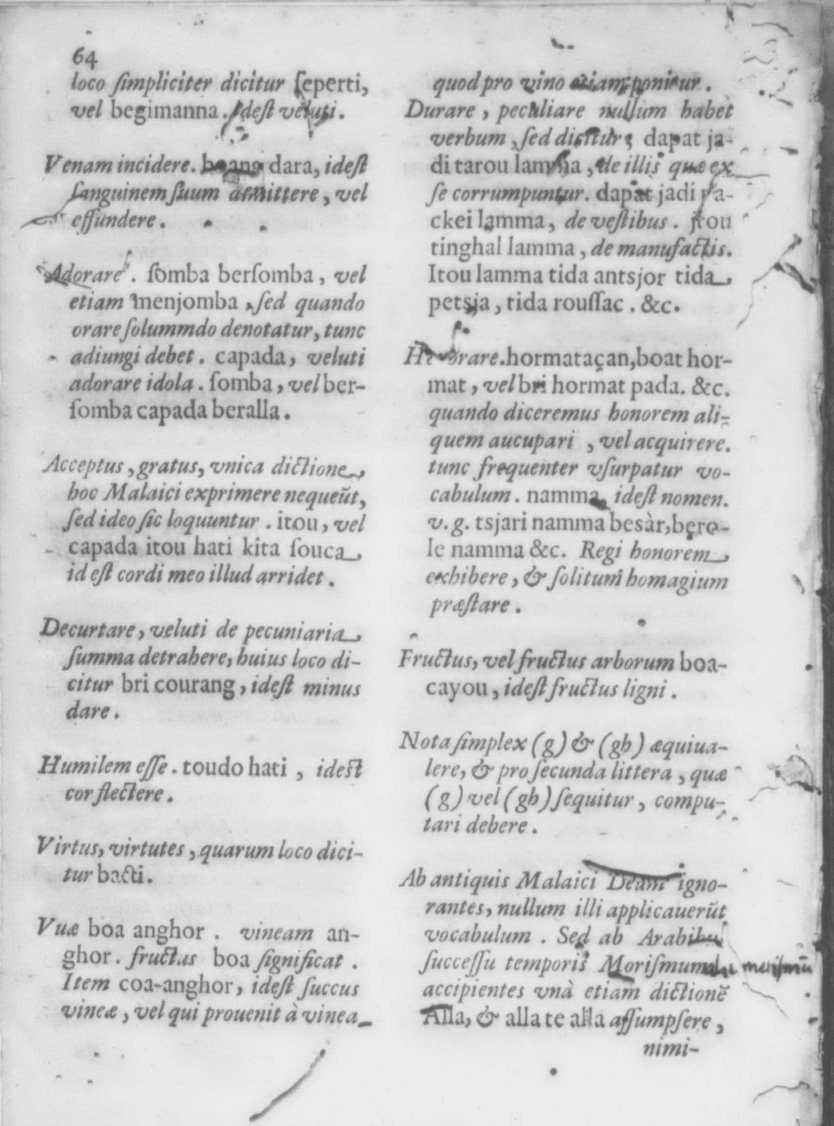 64
loco ſimpliciter dicitur ſeperti,
vel begimanna. ideſt veluti.
Venam incidere. boang dara, ideſt
ſanguinem ſuum amittere, vel
effundere.
Adorare. ſomba berſomba, vel
etiam menjomba, ſed quando
orare ſolummdo denotatur, tunc
adiungi debet. capada, veluti
adorare idola. ſomba, vel ber-
ſomba capada beralla.
Acceptus, gratus, vnica dictione,
hoc Malaici exprimere nequeūt,
ſed ideo ſic loquuntur. itou, vel
capada itou hati kita ſouca,
id eſt cordi meo illud arridet.
Decurtare, veluti de pecuniaria
ſumma detrahere, huius loco di-
citur bri courang, ideſt minus
dare.
Humilem eſſe. toudo hati, ideſt
cor flectere.
Virtus, virtutes, quarum loco dici-
tur bacti.
Vuæ boa anghor. vineam an-
ghor. fructus boa ſignificat.
Item coa-anghor, ideſt ſuccus
vineæ, vel qui prouenit à vinea
quod pro vino etiam ponitur.
Durare, peculiare nullum habet
verbum, ſed dicitur; dapat ja-
di tarou lamma, de illis quæ ex
ſe corrumpuntur. dapat jadi pa-
ckei lamma, de veſtibus. itou
tinghal lamma, de manufactis.
Itou lamma tida antsjor tida
petsja, tida rouſſac. &c.
Honorare. hormataçan, boat hor-
mat, vel bri hormat pada. &c.
quando diceremus honorem ali-
quem aucupari, vel acquirere.
tunc frequenter vſurpatur vo-
cabulum. namma, ideſt nomen.
v.g. tsjari namma besàr, bero-
le namma &c. Regi honorem
exhibere, & ſolitum homagium
præſtare.
Fructus, vel fructus arborum boa-
cayou, ideſt fructus ligni.
Nota ſimplex (g) & (gh) æquiua-
lere, & pro ſecunda littera, quæ
(g) vel (gh) ſequitur, compu-
tari debere.
Ab antiquis Malaici Deum igno-
rantes, nullum illi applicauerūt
vocabulum. Sed ab Arabibus
ſucceſſu temporis Moriſmum
accipientes vnà etiam dictionē
Alla, & alla te alla aſſumpſere,
nimi-